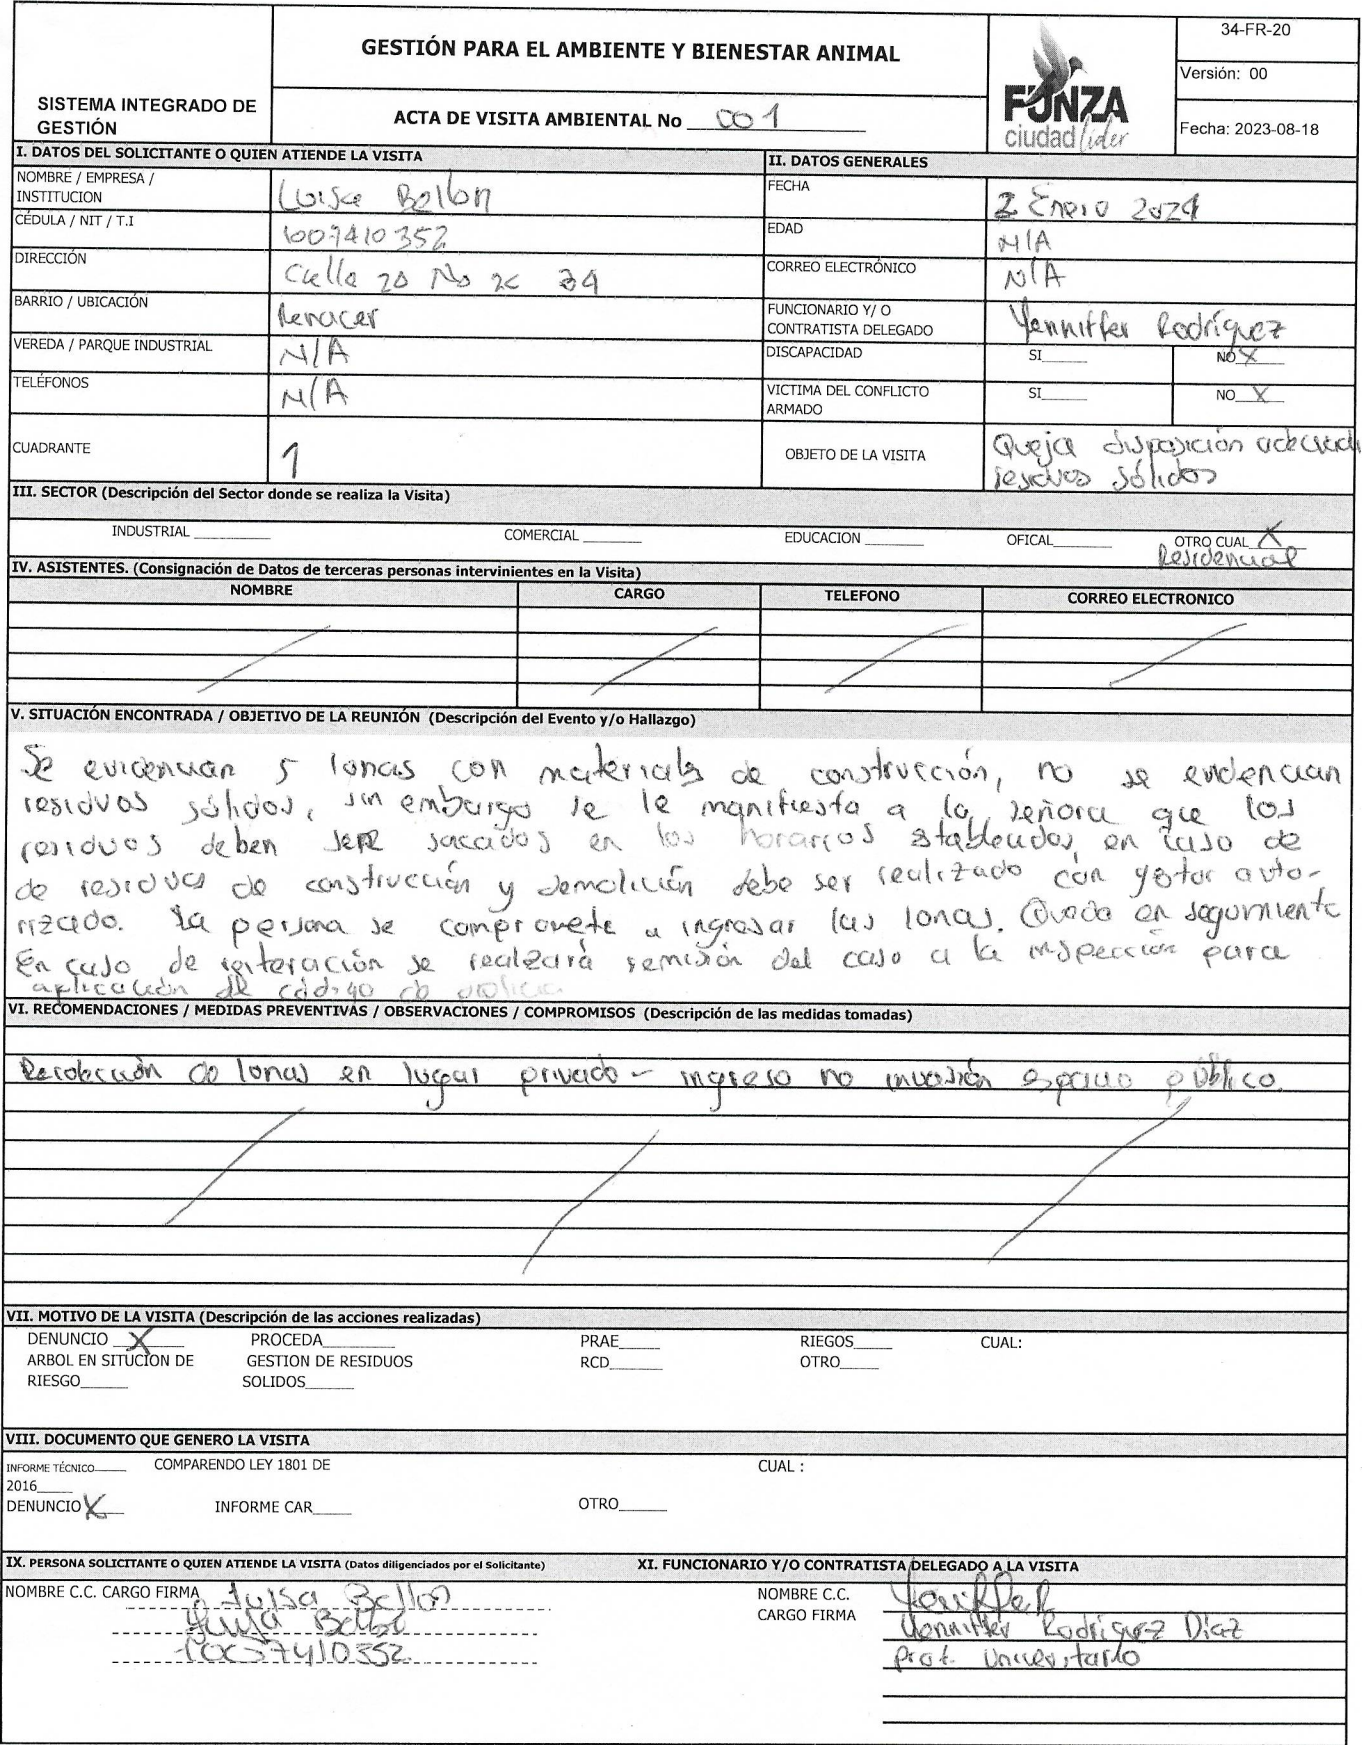 SISTEMA INTEGRADO DE GESTIÓN
GESTIÓN PARA EL AMBIENTE Y BIENESTAR ANIMAL
ACTA DE VISITA AMBIENTAL No 001
FUNZA
ciudad líder
34-FR-20
Versión: 00
Fecha: 2023-08-18
I. DATOS DEL SOLICITANTE O QUIEN ATIENDE LA VISITA
NOMBRE / EMPRESA / INSTITUCION Luisa Bellon
CÉDULA / NIT / T.I 1007410352
DIRECCIÓN Calle 20 No 2c 34
BARRIO / UBICACIÓN Renacer
VEREDA / PARQUE INDUSTRIAL N/A
TELÉFONOS N/A
CUADRANTE 1
II. DATOS GENERALES
FECHA 2 Enero 2024
EDAD N/A
CORREO ELECTRÓNICO N/A
FUNCIONARIO Y/ O CONTRATISTA DELEGADO Yenniffer Rodríguez
DISCAPACIDAD SI____ NO X
VICTIMA DEL CONFLICTO ARMADO SI____ NO X
OBJETO DE LA VISITA Queja disposición adecuada
residuos sólidos
III. SECTOR (Descripción del Sector donde se realiza la Visita)
INDUSTRIAL ____ COMERCIAL ____ EDUCACION ____ OFICAL____ OTRO CUAL X
Residencial
IV. ASISTENTES. (Consignación de Datos de terceras personas intervinientes en la Visita)
NOMBRE CARGO TELEFONO CORREO ELECTRONICO
V. SITUACIÓN ENCONTRADA / OBJETIVO DE LA REUNIÓN (Descripción del Evento y/o Hallazgo)
Se evidencian 5 lonas con materiales de construcción, no se evidencian
residuos sólidos, sin embargo se le manifiesta a la señora que los
residuos deben ser sacados en los horarios establecidos, en caso de
de residuos de construcción y demolición debe ser realizado con gestor auto-
rizado. La persona se compromete a ingresar las lonas. Queda en seguimiento
En caso de reiteración se realizará remisión del caso a la inspección para
aplicación del código de policía
VI. RECOMENDACIONES / MEDIDAS PREVENTIVAS / OBSERVACIONES / COMPROMISOS (Descripción de las medidas tomadas)
Recolección de lonas en lugar privado - ingreso no invasión espacio público.
VII. MOTIVO DE LA VISITA (Descripción de las acciones realizadas)
DENUNCIO X PROCEDA____ PRAE____ RIEGOS____ CUAL:
ARBOL EN SITUCION DE RIESGO____ GESTION DE RESIDUOS SOLIDOS____ RCD____ OTRO____
VIII. DOCUMENTO QUE GENERO LA VISITA
INFORME TÉCNICO____ COMPARENDO LEY 1801 DE 2016____ CUAL :
DENUNCIO X INFORME CAR____ OTRO____
IX. PERSONA SOLICITANTE O QUIEN ATIENDE LA VISITA (Datos diligenciados por el Solicitante)
NOMBRE C.C. CARGO FIRMA Luisa Bellon
Luisa Bellon
1007410352
XI. FUNCIONARIO Y/O CONTRATISTA DELEGADO A LA VISITA
NOMBRE C.C. CARGO FIRMA Yeniffer R
Yenniffer Rodríguez Díaz
Prof. Universitario